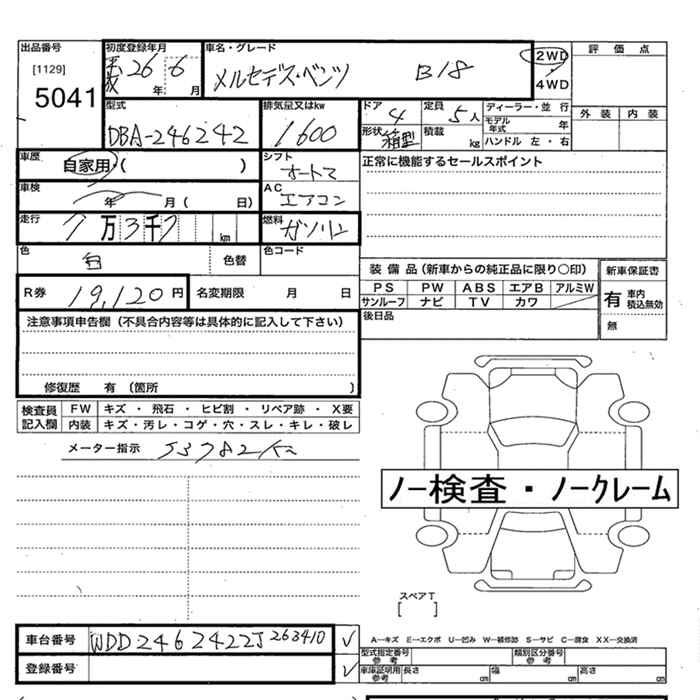 出品番号
[1129]
5041
初度登録年月
平成 26年 6月
車名・グレード
メルセデス・ベンツ B18
2WD
4WD
評価点
外装 内装
型式
DBA-246242
排気量又はkw
1600
ドア
4
定員
5人
形状
箱型
積載
kg
ディーラー・並行
モデル年式 年
ハンドル 左・右
車歴
自家用・( )
シフト
オートマ
正常に機能するセールスポイント
車検
年 月( 日)
AC
エアコン
走行
7万3千
km
燃料
ガソリン
色
白
色替
色コード
R券
19,120円
名変期限 月 日
装備品(新車からの純正品に限り○印)
PS PW ABS エアB アルミW
サンルーフ ナビ TV カワ
新車保証書
有 車内積込無効
無
後日品
注意事項申告欄(不具合内容等は具体的に記入して下さい)
修復歴 有(箇所 )
検査員記入欄
FW キズ・飛石・ヒビ割・リペア跡・X要
内装 キズ・汚レ・コゲ・穴・スレ・キレ・破レ
メーター指示
ノー検査・ノークレーム
スペアT
[ ]
車台番号
WDD2462422J263410
登録番号
A―キズ E―エクボ U―凹み W―補修跡 S―サビ C―腐食 XX―交換済
型式指定番号 参考
類別区分番号 参考
車庫証明用 参考
長さ cm
幅 cm
高さ cm